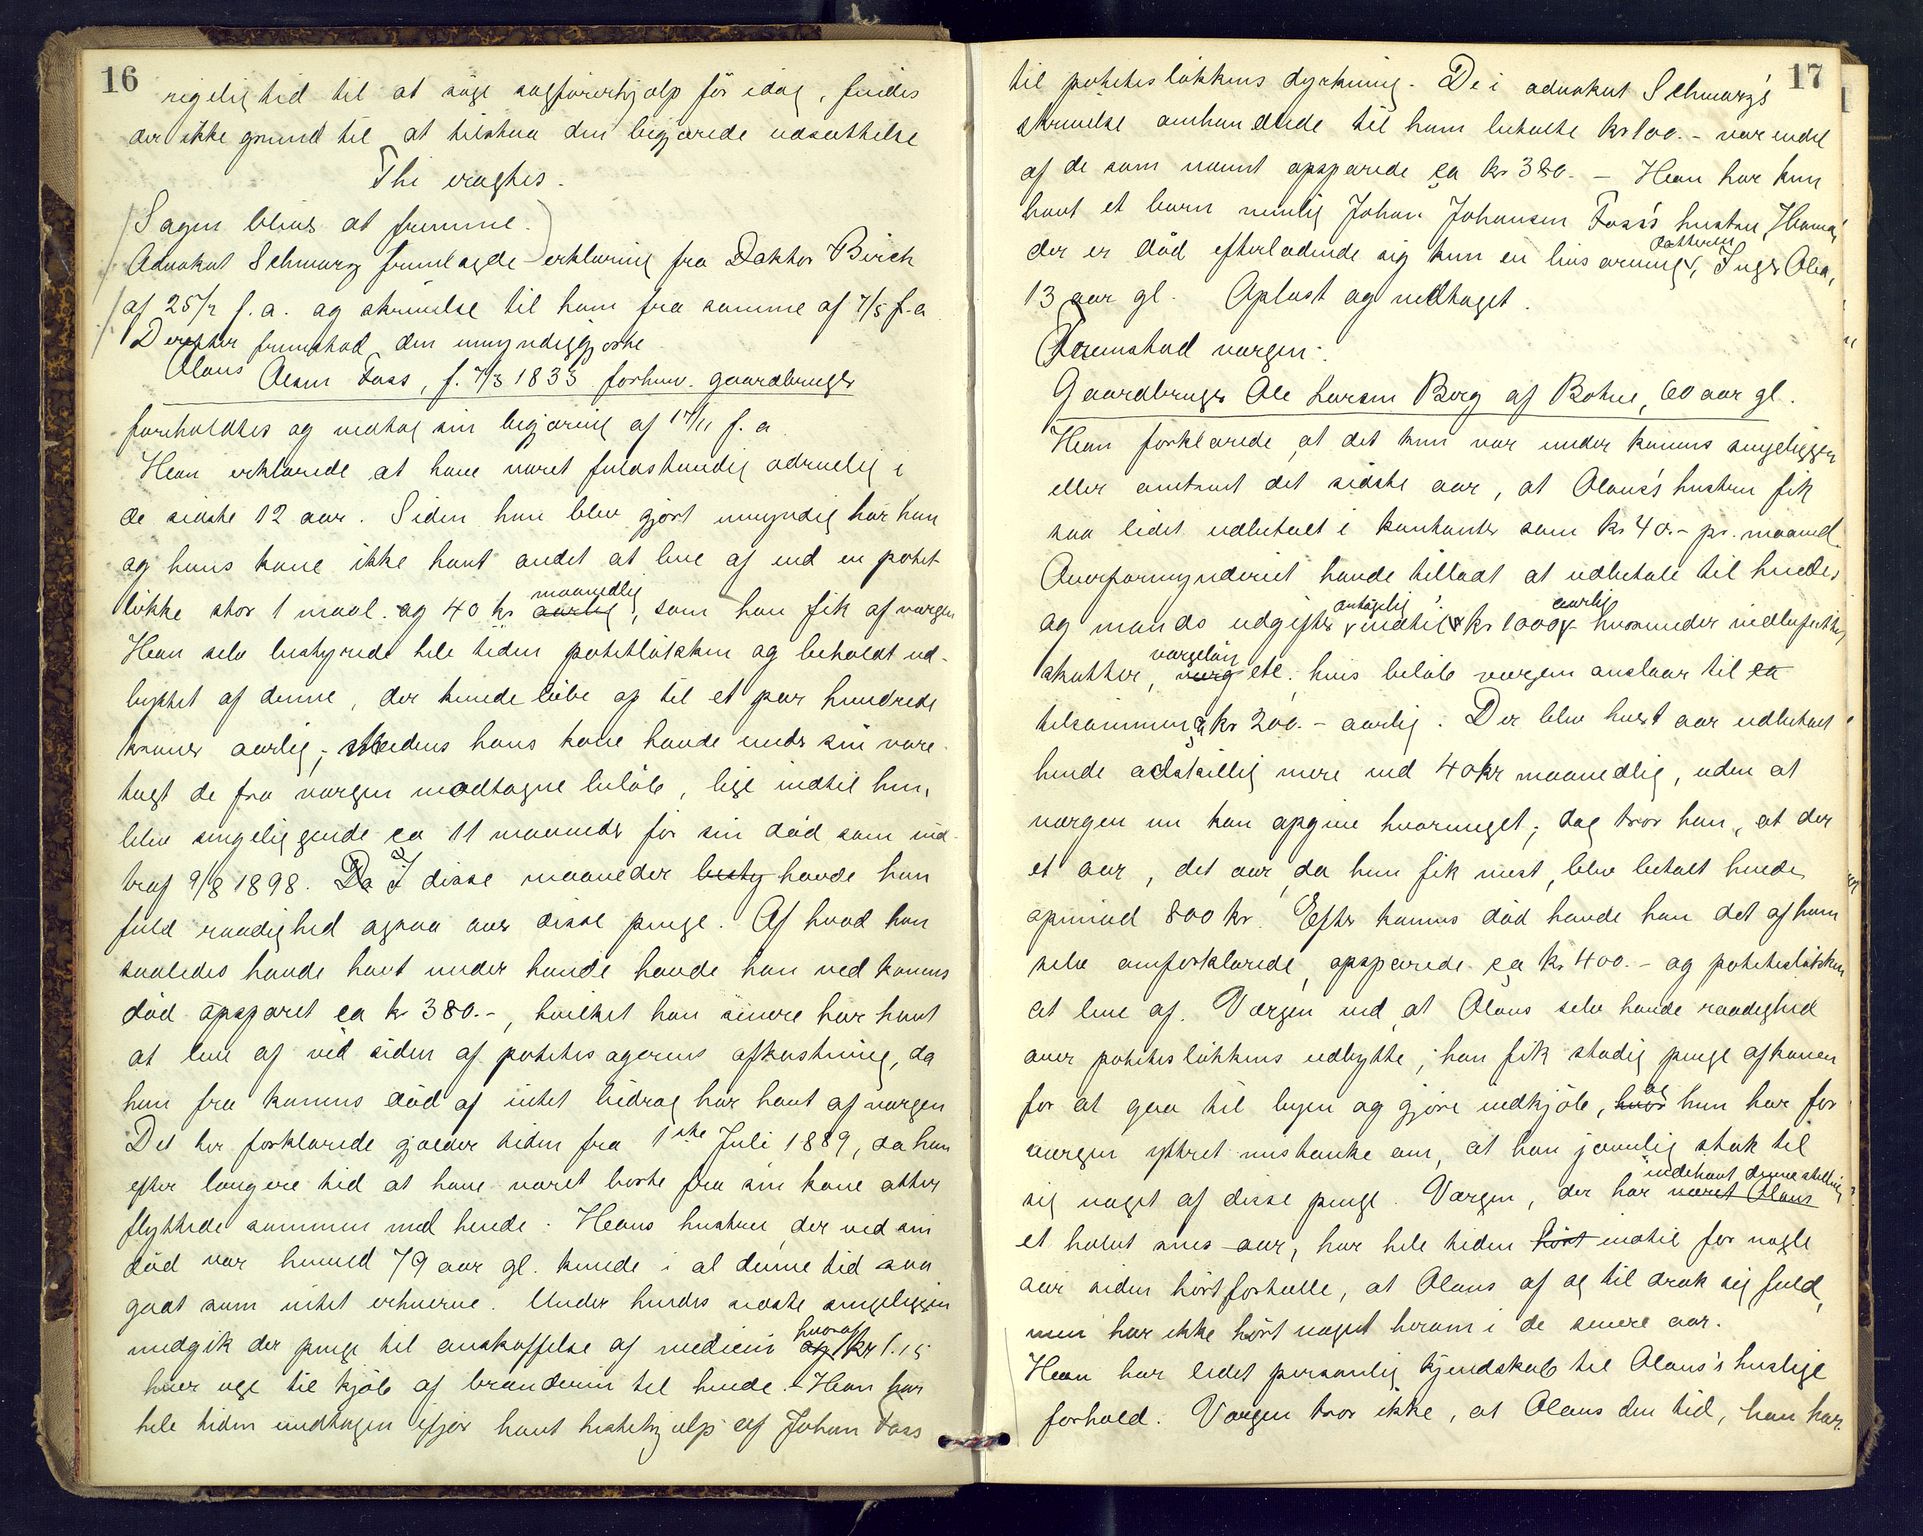 16
rigelig tid til at söge sagförerhjælp för idag, findes
der ikke grund til at tilstaa den begjærede udsættelse
Thi eragtes.
Sagen blive at fremme.
Advokat Schwarz fremlagde erklæring fra Doktor Birch
af 25/2 f.a. og skrivelse til ham fra samme af 7/5 f.a
Derefter fremstod den umyndiggjorte
Olaus Olsen Foss, f. 7/3 1833 forhenv. gaardbruger
foreholdtes og vedtog sin begjæring af 17/11 f.a.
Han erklærede at have været fuldstændig ædruelig i
de sidste 12 aar. Siden han blev gjort umyndig har han
og hans kone ikke havt andet at leve af end en potet-
lökke stor 1 maal og 40 kr aarlig maanedlig, som han fik af værgen
Han selv bestyrede hele tiden potetlökken og beholdt ud-
byttet af denne, der kunde löbe op til et par hundrede
kroner aarlig; medens hans kone havde under sin vare-
tægt de fra værgen modtagne belöb, lige indtil hun
blev sengeliggende ca 11 maaneder för sin död som ind-
traf 9/8 1898. Da I disse maaneder besty havde han
fuld raadighed ogsaa over disse penge. Af hvad han
saaledes havde havt under hænde havde han ved konens
död opsparet ca kr 380.-, hvilket han senere har havt
at leve af ved siden af potetesagerens afkastning, da
han fra konens död af intet bidrag har havt af værgen
Det her forklarede gjælder tiden fra 1ste Juli 1889, da han
efter længere tid at have været borte fra sin kone atter
flyttede sammen med hende. Hans hustru, der ved sin
död var henved 79 aar gl. kunde i al denne tid saa
godt som intet erhverve. Under hendes sidste sengeliggen
medgik der penge til anskaffelse af medicin og hvoraf kr 1.15
hver uge til kjöb af brændevin til hende. - Han har
hele tiden undtagen ifjor havt hestehjælp af Johan Foss
17
til poteteslökkens dyrkning. De i advokat Schwarz's
skrivelse omhandlede til ham betalte kr 100.- var endel
af de som nævnt opsparede ca kr 380. - Han har kun
havt et barn nemlig Johan Johansen Foss's hustru,
der er död efterladende sig kun en livsarving, datteren Inger Olea,
13 aar gl. Oplæst og vedtaget.
Fremstod værgen:
Gaardbruger Ole Larsen Berg af Bohus, 60 aar gl.
Han forklarede, at det kun var under konens sengeliggen
eller omtrent det sidste aar, at Olaus's hustru fik
saa lidet udbetalt i kontanter som kr 40.- pr. maaned.
Overformynderiet havde tilladt at udbetale til hendes
og mands udgifter antagelig indtil kr 1000 aarlig hvorunder indbefattet
skatter, værg værgelön etc. hvis belöb værgen anslaar til ca
tilsammen ca kr 200.- aarlig. Der blev hvert aar udbetalt
hende adskillig mere end 40 kr maanedlig, uden at
værgen nu kan opgive hvormeget; dog tror han, at der
et aar, det aar da hun fik mest, blev betalt hende
opimod 800 kr. Efter konens död havde han det af ham
selv omforklarede, opsparede ca kr 400.- og poteteslökken
at leve af. Værgen ved, at Olaus selv havde raadighed
over poteteslökkens udbytte; han fik stadig penge af konen
for at gaa til byen og gjöre indkjöb, hvor og hun har for
værgen yttret mistanke om, at han jævnlig stak til
sig noget af disse penge. Værgen, der har været Olaus indehavt denne stilling
et halvt snes aar, har hele tiden hört indtil for nogle
aar siden hört fortælle, at Olaus af og til drak sig fuld,
men har ikke hört noget herom i de senere aar.
Han har lidet personlig kjendskab til Olaus's huslige
forhold. Værgen tror ikke, at Olaus den tid, han har